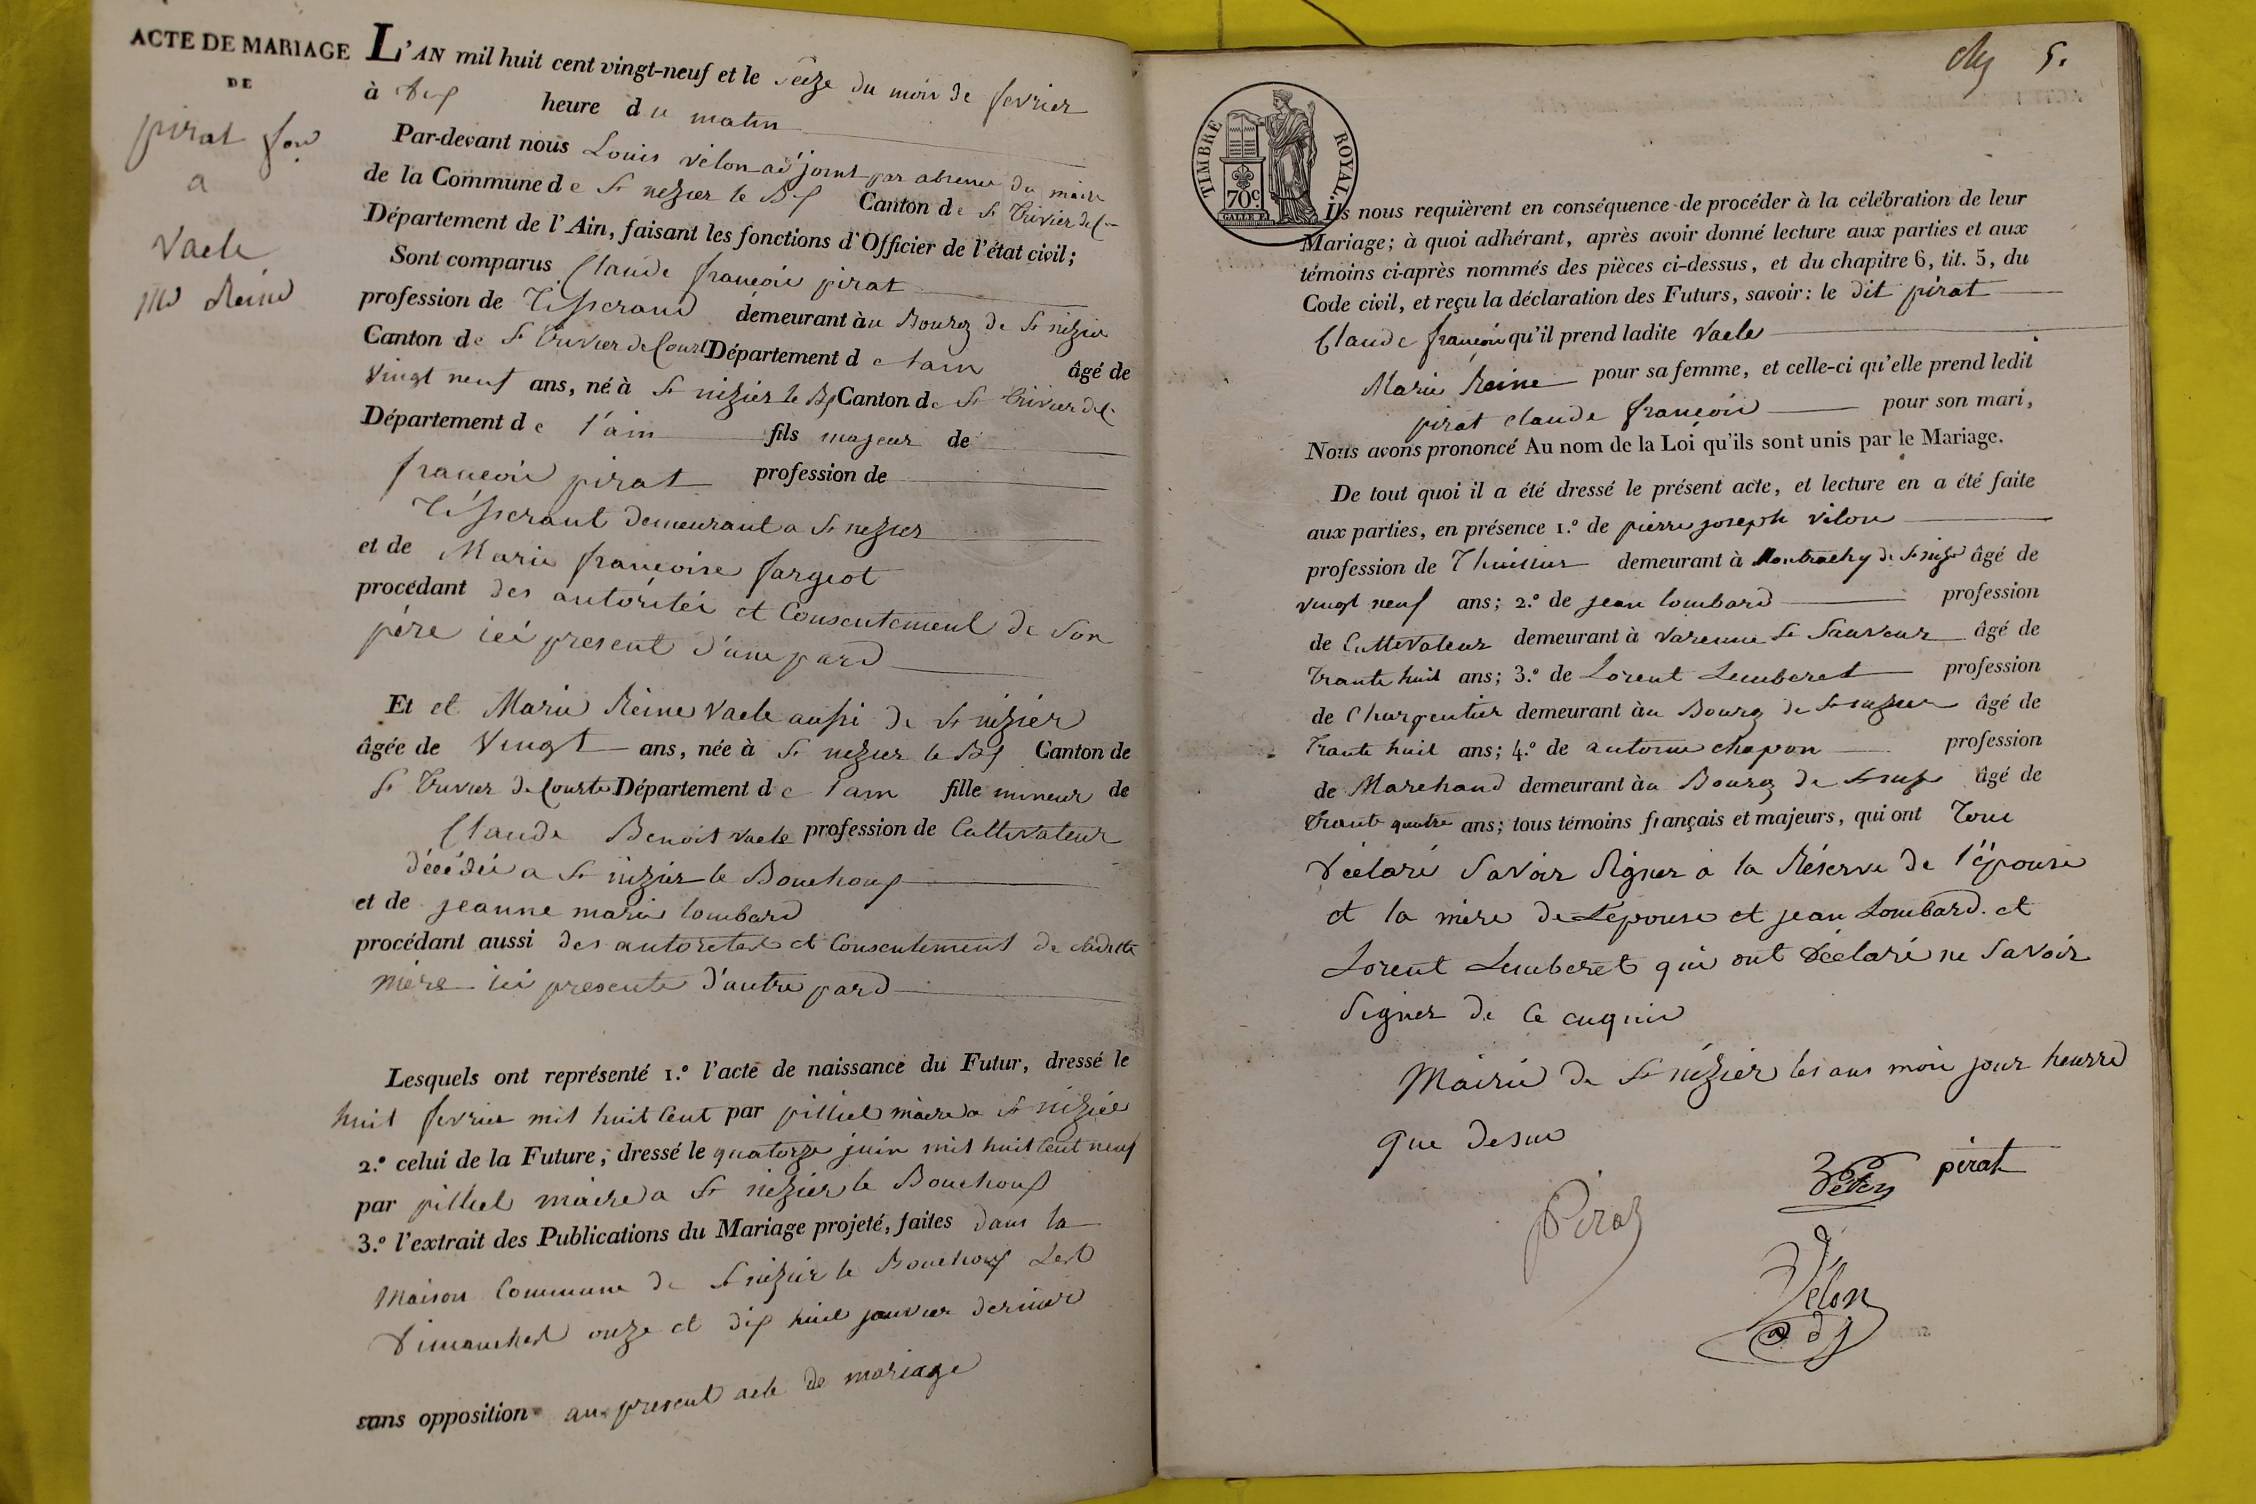 ACTE DE MARIAGE
DE
pirat
a
Vacle
Reine
L'AN mil huit cent vingt-neuf et le seize du mois de fevrier
à dix heure du matin
Par-devant nous Louis vélon adjoint par absence du maire
de la Commune de St nezier le Bx Canton de St Trivier de C
Département de l'Ain, faisant les fonctions d'Officier de l'état civil;
Sont comparus Claude françois pirat
profession de Tisserand demeurant àu Bourg de St nizier
Canton de St Trivier de Court Département de lain âgé de
vingt neuf ans, né à St nizier le Bx Canton de St Trivier de C
Département de l'ain fils majeur de
françois pirat profession de
Tisseraut demeurant a St nezier
et de Marie françoise fargeot
procédant des autorités et Consentement de Son
père ici present d'une pard
Et et Marie Reine Vacle aussi de St nizier
âgée de Vingt ans, née à St nezier le Bx Canton de
St Trivier de Courte Département de lain fille mineur de
Claude Benoit vacle profession de Cultivateur
décédé a St nizier le Bouchoux
et de jeanne marie lombard
procédant aussi des autoretes et Consentement de
mère ici presente d'autre pard
Lesquels ont représenté 1.º l'acte de naissance du Futur, dressé le
huit fevrier mil huit Cent par pilliel maire a St nizier
2.º celui de la Future, dressé le quatorze juin mil huit Cent neuf
par pilliel maire a St nizier le Bouchoux
3.º l'extrait des Publications du Mariage projeté, faites dans la
Maison Commune de St nizier le Bouchoux
Dimanches onze et dix huit janvier dernier
sans opposition au present acte de mariage
5.
TIMBRE ROYAL.
70c.
Ils nous requièrent en conséquence de procéder à la célébration de leur
Mariage; à quoi adhérant, après avoir donné lecture aux parties et aux
témoins ci-après nommés des pièces ci-dessus, et du chapitre 6, tit. 5, du
Code civil, et reçu la déclaration des Futurs, savoir: le dit pirat
Claude françois qu'il prend ladite Vacle
Marie Reine pour sa femme, et celle-ci qu'elle prend ledit
pirat claude françois pour son mari,
Nous avons prononcé Au nom de la Loi qu'ils sont unis par le Mariage.
De tout quoi il a été dressé le présent acte, et lecture en a été faite
aux parties, en présence 1.º de pierre joseph vilon
profession de demeurant à de St âgé de
vingt neuf ans; 2.º de jean lombard profession
de Cultivateur demeurant à varenne St Sauveur âgé de
Trante huit ans; 3.º de Lorent Lemberet profession
de Charpentier demeurant àu Bourg de St nizier âgé de
Trante huit ans; 4.º de antoine chapon profession
de Marchand demeurant àu Bourg de St âgé de
Trante quatre ans; tous témoins français et majeurs, qui ont Tous
déclaré Savoir Signer a la Réserve de l'épouse
et la mère de Lépouse et jean Lombard. et
Lorent Lemberet qui ont déclaré ne Savoir
Signer de Ce enquis
Mairie de St nizier les ans mois jour heurre
que desus
pirat
Piraz
Vélon
adj